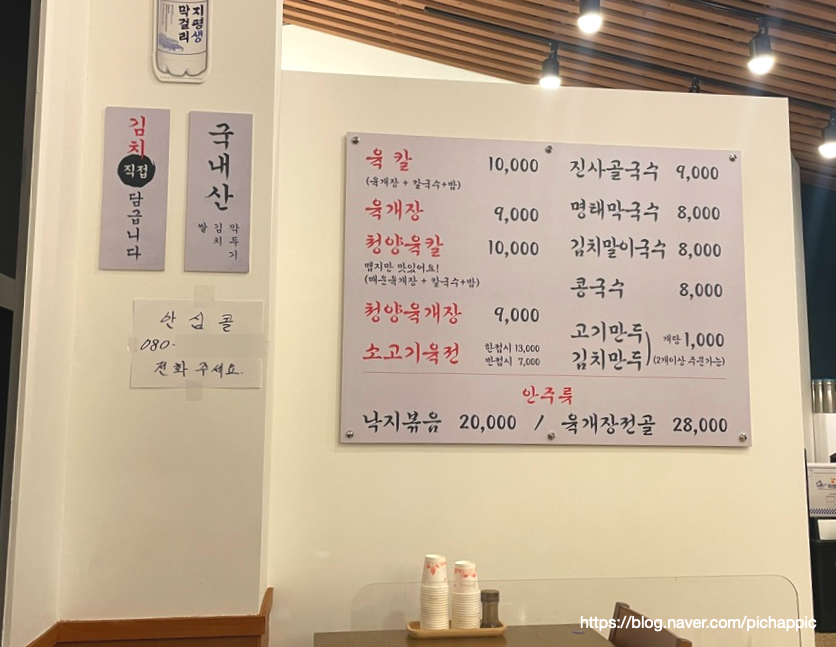 지평생
막걸리
김치
직접
담급니다
국내산
쌀
김치
막두기
안심콜
080-
전화 주셔요.
육칼 10,000
(육개장 + 칼국수+밥)
육개장 9,000
청양육칼 10,000
맵지만 맛있어요!
(매운육개장 + 칼국수+밥)
청양육개장 9,000
소고기육전 한접시 13,000
반접시 7,000
진사골국수 9,000
명태막국수 8,000
김치말이국수 8,000
콩국수 8,000
고기만두
김치만두
개당 1,000
(2개이상 주문가능)
안주류
낙지볶음 20,000 / 육개장전골 28,000
https://blog.naver.com/pichappic